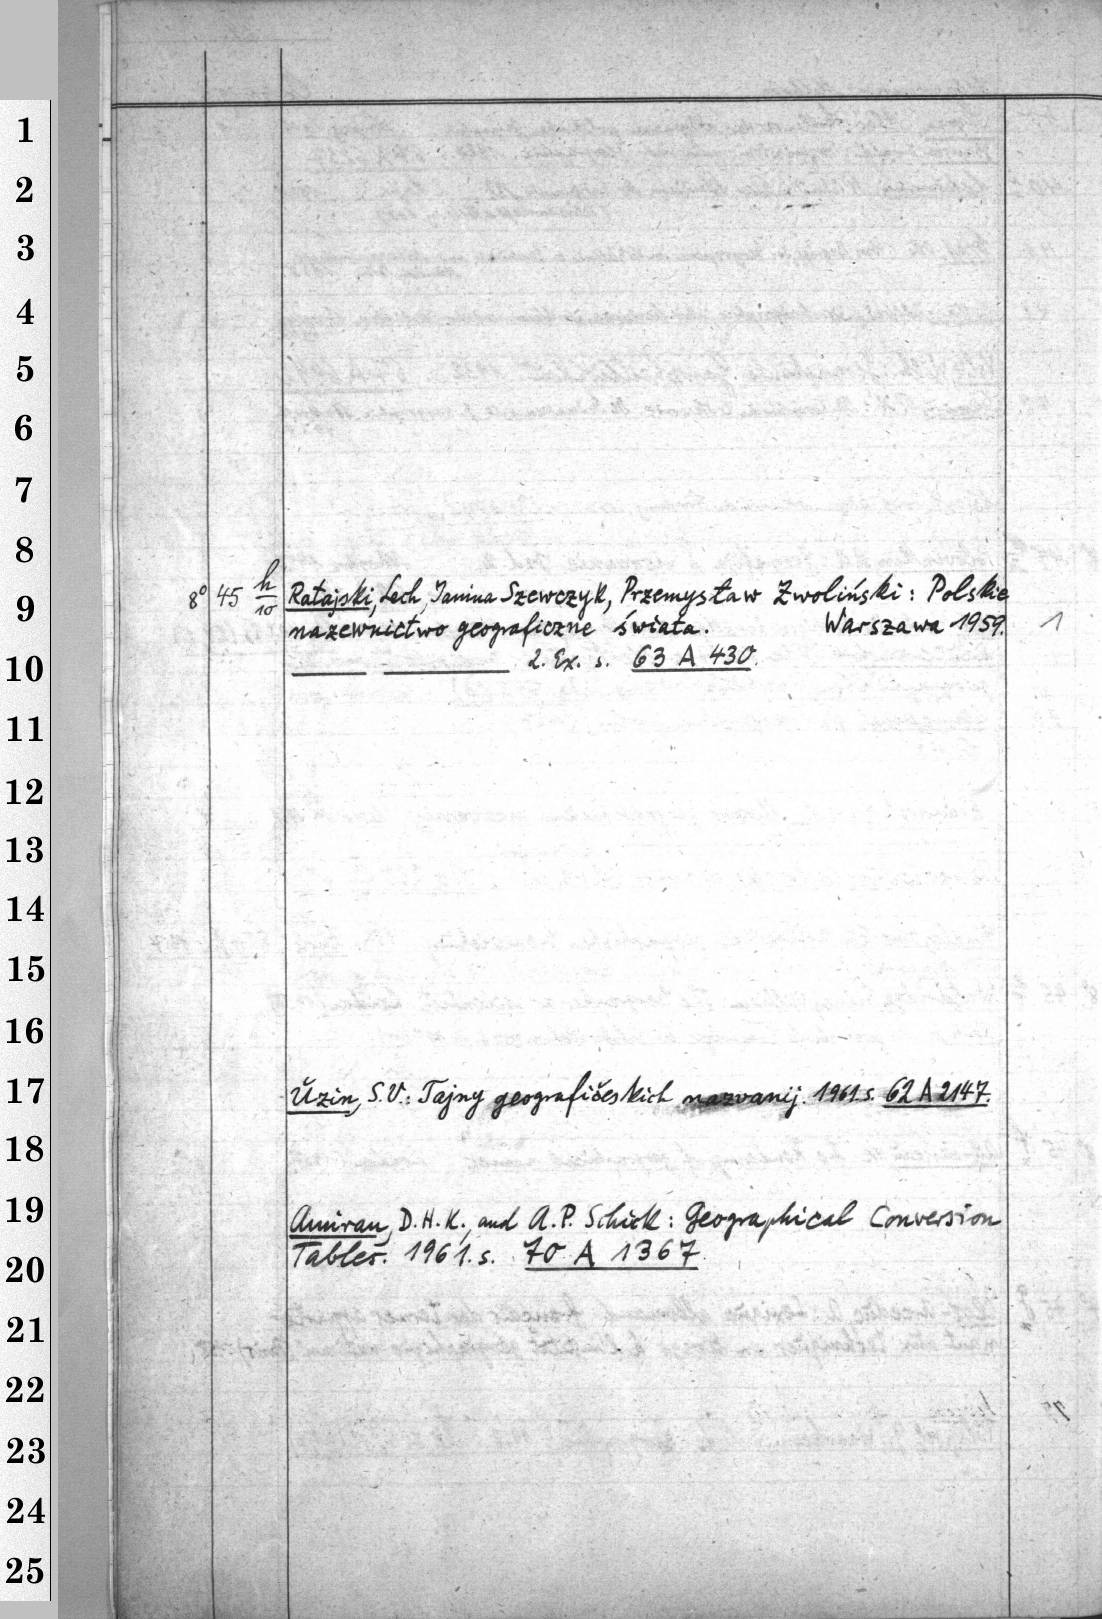 1
2
3
4
5
6
7
8
9
10
11
12
13
14
15
16
17
18
19
20
21
22
23
24
25
8° 45 h/10 Ratajski, Lech, Janina Szewczyk, Przemysław Zwoliński: Polskie
nazewnictwo geograficzne świata. Warszawa 1959. 1
2. Ex. s. 63 A 430.
Ŭzin, S.V.: Tajny geografičeskich nazvanij. 1961 s. 62 A 2147.
Amiran, D.H.K., and A.P. Schick: Geographical Conversion
Tables. 1961. s. 70 A 1367.